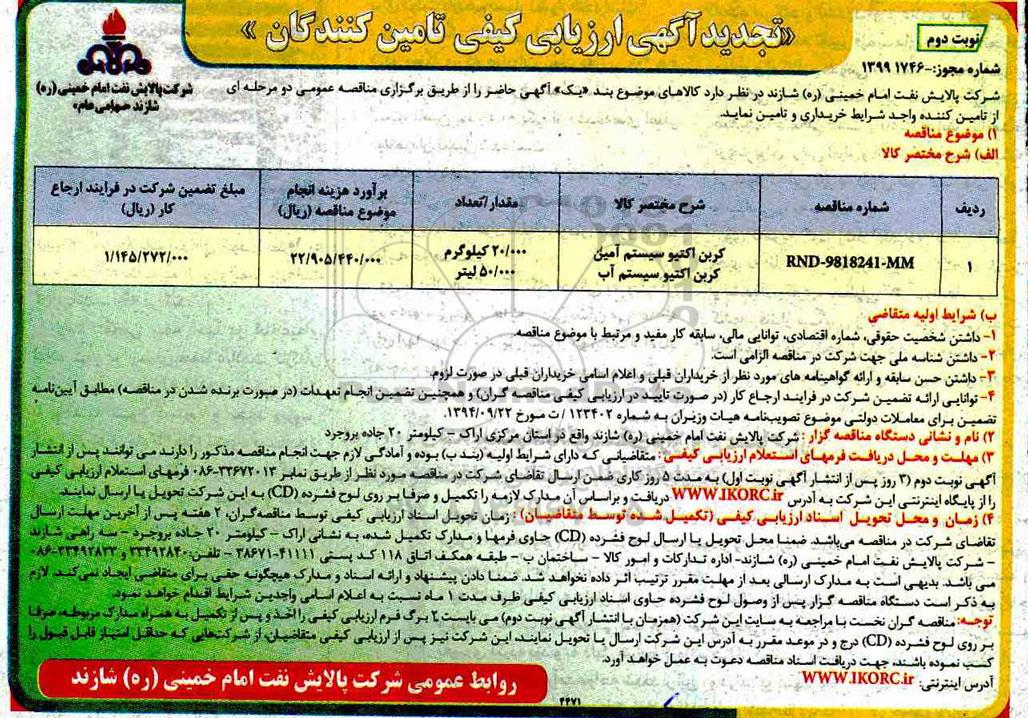 «تجدید آگهی ارزیابی کیفی تامین کنندگان»
نوبت دوم
شماره مجوز: ۱۷۴۶-۱۳۹۹
شرکت پالایش نفت امام خمینی (ره) شازند
«سهامی عام»
شرکت پالایش نفت امام خمینی (ره) شازند در نظر دارد کالاهای موضوع بند «یک» آگهی حاضر را از طریق برگزاری مناقصه عمومی دو مرحله ای
از تامین کننده واجد شرایط خریداری و تامین نماید.
۱) موضوع مناقصه
الف) شرح مختصر کالا
ردیف شماره مناقصه شرح مختصر کالا مقدار/تعداد برآورد هزینه انجام موضوع مناقصه (ریال) مبلغ تضمین شرکت در فرایند ارجاع کار (ریال)
۱ RND-9818241-MM کربن اکتیو سیستم آمین ۲۰/۰۰۰ کیلوگرم ۲۲/۹۰۵/۴۴۰/۰۰۰ ۱/۱۴۵/۲۷۲/۰۰۰
کربن اکتیو سیستم آب ۵۰/۰۰۰ لیتر
ب) شرایط اولیه متقاضی
۱- داشتن شخصیت حقوقی، شماره اقتصادی، توانایی مالی، سابقه کار مفید و مرتبط با موضوع مناقصه.
۲- داشتن شناسه ملی جهت شرکت در مناقصه الزامی است.
۳- داشتن حسن سابقه و ارائه گواهینامه های مورد نظر از خریداران قبلی و اعلام اسامی خریداران قبلی در صورت لزوم.
۴- توانایی ارائه تضمین شرکت در فرایند ارجاع کار (در صورت تایید در ارزیابی کیفی مناقصه گران) و همچنین تضمین انجام تعهدات (در صورت برنده شدن در مناقصه) مطابق آیین‌نامه
تضمین برای معاملات دولتی موضوع تصویبنامه هیات وزیران به شماره ۱۲۳۴۰۲ / ت مورخ ۱۳۹۴/۰۹/۲۲.
۲) نام و نشانی دستگاه مناقصه گزار: شرکت پالایش نفت امام خمینی (ره) شازند واقع در استان مرکزی اراک - کیلومتر ۲۰ جاده بروجرد
۳) مهلت و محل دریافت فرمهای استعلام ارزیابی کیفی: متقاضیانی که دارای شرایط اولیه (بند ب) بوده و آمادگی لازم جهت انجام مناقصه مذکور را دارند می توانند پس از انتشار
آگهی نوبت دوم (۳ روز پس از انتشار آگهی نوبت اول) به مدت ۵ روز کاری ضمن ارسال تقاضای شرکت در مناقصه مورد نظر از طریق نمابر ۳۳۶۷۲۰۱۳-۰۸۶ فرمهای استعلام ارزیابی کیفی
را از پایگاه اینترنتی این شرکت به آدرس WWW.IKORC.ir دریافت و براساس آن مدارک لازمه را تکمیل و صرفا بر روی لوح فشرده (CD) به این شرکت تحویل یا ارسال نمایند.
۴) زمان و محل تحویل اسناد ارزیابی کیفی (تکمیل شده توسط متقاضیان): زمان تحویل اسناد ارزیابی کیفی توسط مناقصه‌گران، ۲ هفته پس از آخرین مهلت ارسال
تقاضای شرکت در مناقصه می‌باشد. ضمنا محل تحویل یا ارسال لوح فشرده (CD) حاوی فرمها و مدارک تکمیل شده، به نشانی اراک - کیلومتر ۲۰ جاده بروجرد - سه راهی شازند
- شرکت پالایش نفت امام خمینی (ره) شازند- اداره تدارکات و امور کالا - ساختمان ب- طبقه همکف اتاق ۱۱۸ کد پستی ۴۱۱۱۱-۳۸۶۷۱ - تلفن: ۳۳۴۹۲۸۴۰ و ۳۳۴۹۲۸۳۳-۰۸۶
می باشد. بدیهی است به مدارک ارسالی بعد از مهلت مقرر ترتیب اثر داده نخواهد شد. ضمنا دادن پیشنهاد و ارائه اسناد و مدارک هیچگونه حقی برای متقاضی ایجاد نمی‌کند. لازم
به ذکر است دستگاه مناقصه گزار پس از وصول لوح فشرده حاوی اسناد ارزیابی کیفی ظرف مدت ۱ ماه نسبت به اعلام اسامی واجدین شرایط اقدام خواهد نمود.
توجه: مناقصه گران نخست با مراجعه به سایت این شرکت (همزمان با انتشار آگهی نوبت دوم) می بایست برگ فرم ارزیابی کیفی را اخذ و پس از تکمیل به همراه مدارک مربوطه، صرفا
بر روی لوح فشرده (CD) درج و در موعد مقرر به آدرس این شرکت ارسال یا تحویل نمایند، این شرکت نیز پس از ارزیابی کیفی متقاضیان، از شرکت‌هایی که حداقل امتیاز قابل قبول را
کسب نموده باشند، جهت دریافت اسناد مناقصه دعوت به عمل خواهد آورد.
آدرس اینترنتی: WWW.IKORC.ir
روابط عمومی شرکت پالایش نفت امام خمینی (ره) شازند
۴۴۷۱